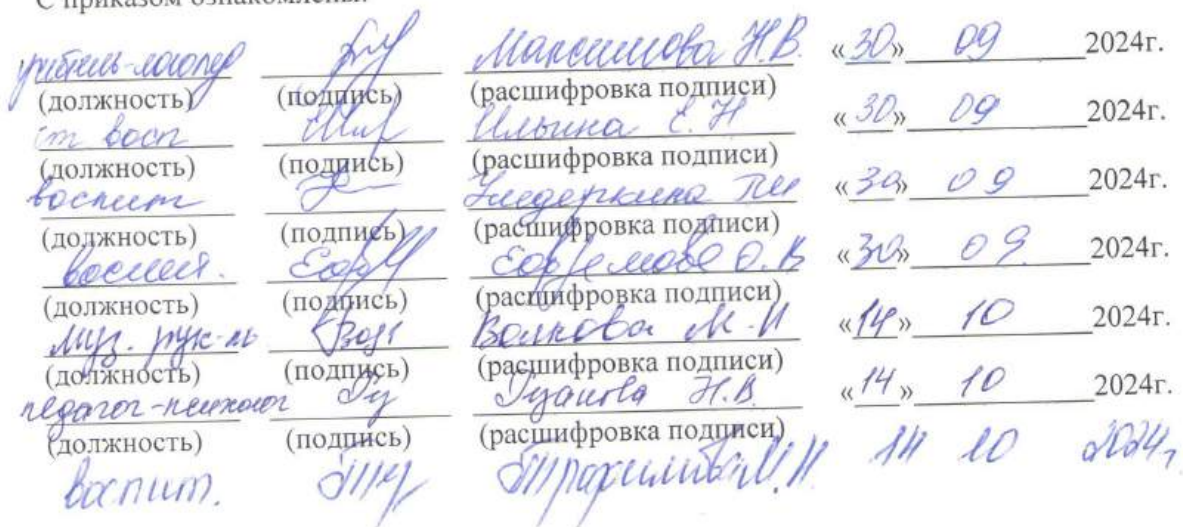 С приказом ознакомлены:
учитель-логопед Максимова Н.В. «30» 09 2024г.
(должность) (подпись) (расшифровка подписи)
ст восп Ильина Е.Н «30» 09 2024г.
(должность) (подпись) (расшифровка подписи)
воспит «30» 09 2024г.
(должность) (подпись) (расшифровка подписи)
воспит. Ефремова О.В «30» 09. 2024г.
(должность) (подпись) (расшифровка подписи)
муз. рук-ль Волкова М.И «14» 10 2024г.
(должность) (подпись) (расшифровка подписи)
педагог-психолог Н.В. «14» 10 2024г.
(должность) (подпись) (расшифровка подписи)
воспит. 14 10 2024г